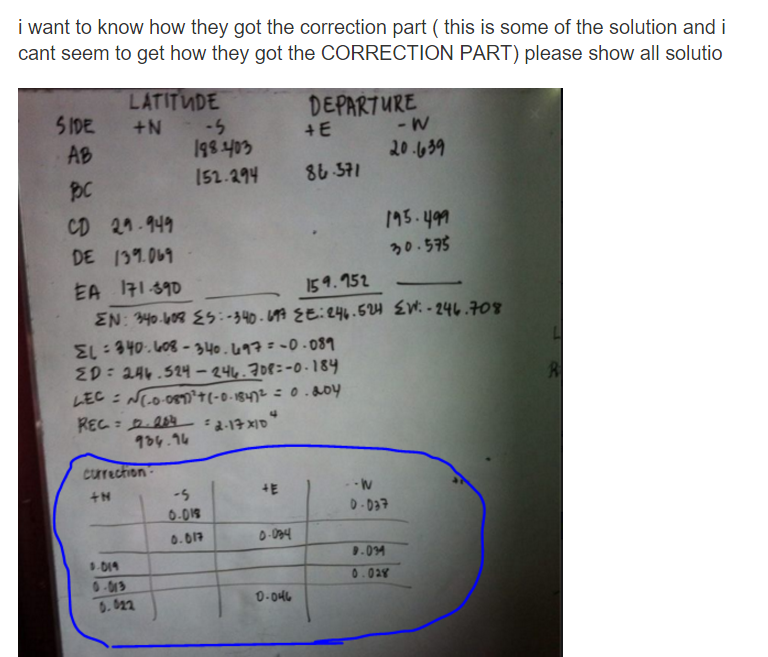 i want to know how they got the correction part ( this is some of the solution and i
cant seem to get how they got the CORRECTION PART) please show all solutio
LATITUDE DEPARTURE
SIDE +N -S +E -W
AB 198.403 20.639
BC 152.294 86.571
CD 29.949 195.499
DE 139.069 30.575
EA 171.590 159.952
ΣN: 340.608 ΣS:-340.697 ΣE:246.524 ΣW:-246.708
ΣL = 340.608 - 340.697 = -0.089
ΣD = 246.524 - 246.708 = -0.184
LEC = √(-0.089)²+(-0.184)² = 0.204
REC = 0.204 = 2.17 x10⁴
934.96
correction -
+N -S +E -W
0.018 0.037
0.017 0.034
0.019 0.039
0.013 0.028
0.022 0.046